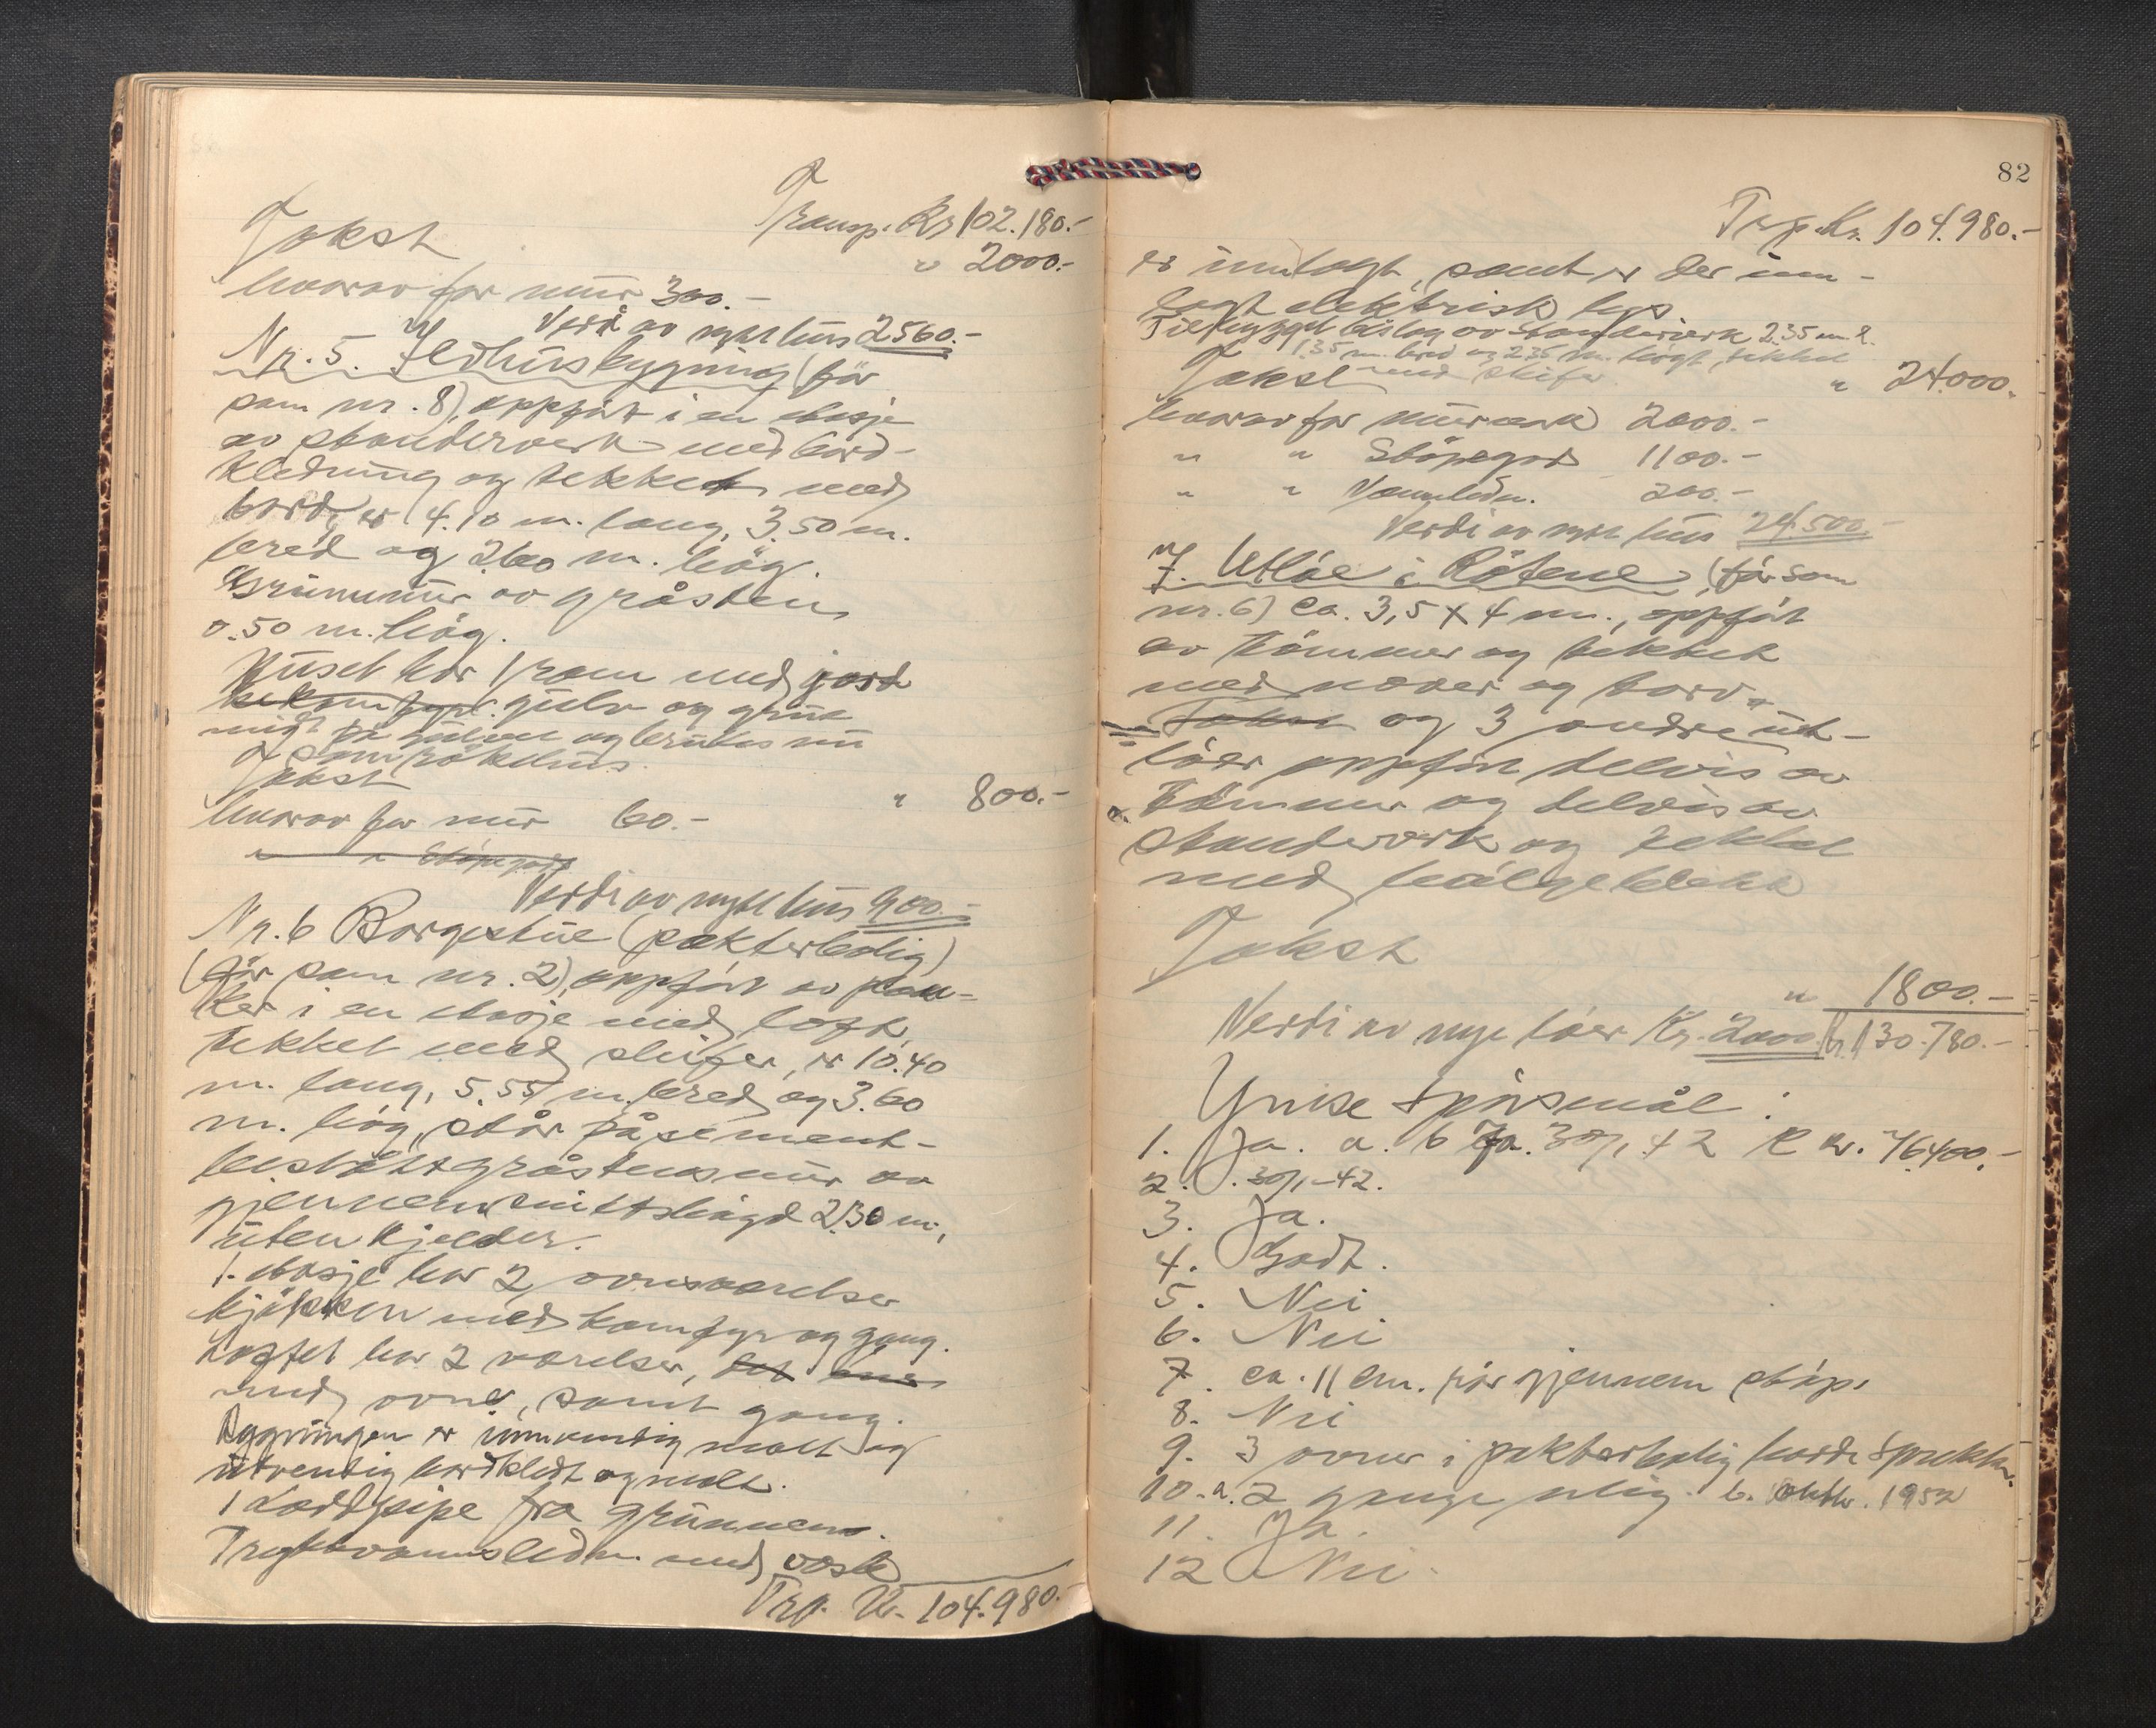 Transp. Kr 102.180.-
Takst " 2000.-
hvorav for mur 300.-
Verdi av nytt hus 2560.-
Nr. 5. Ildhusbygning (før
som nr. 8), oppført i en etasje
av standerverk med bord-
kledning og tekket med
bord, er 4.10 m. lang, 3.50 m.
bred og 2.60 m. høg.
Grunnmur av gråsten
0.50 m. høg.
Huset har 1 rom med jord
bekomfyr. gulv og grue
midt på gulvet og brukes nu
som rökehus.
Takst " 800.-
hvorav for mur 60.-
" " Støpegods
Verdi av nytt hus 900.-
Nr. 6 Borgestue (pakterbolig)
(før som nr. 2), oppført av plan-
ker i en etasje med loft,
tekket med skifer, er 10.40
m. lang, 5.55 m. bred og 3.60
m. høg, står på sement-
gråstensmur av
gjennemsnittshøgd 2.30 m.,
uten kjelder.
1. etasje har 2 ovnsværelser
kjøkken med komfyr og gang.
Loftet har 2 værelser,
med ovne, samt gang.
Bygningen er innvendig malt og
utvendig bordkledt og malt.
1 Loddpipe fra grunnen.
Trykkvannsledn. med vask
Trp. Kr. 104.980.-
82
Trp. Kr. 104.980.-
er innlagt, samt er der inn-
lagt elektrisk lys.
Tilbygget bislag av standerværk 2.35 m l.
1.35 m. bred og 2.35 m. høgt, tekket
med skifer
Takst " 24.000.-
hvorav for murverk 2000.-
" " Støpegods 1100.-
" " Vannledn. 200.-
Verdi av nytt hus 24.500.-
7. Utløe i Røtene, (før som
nr. 6) ca. 3,5 x 4 m., oppført
av tømmer og tekket
med næver og bord.
Takst og 3 andre ut-
løer oppført delvis av
tømmer og delvis av
standerverk og tekket
med bølgeblekk
Takst
" 1800.-
Verdi av nye løer Kr. 2000.- Kr. 130.780.-
Ymse spørsmål:
1. Ja. a. b Ja. 30/1 42 Kr. 76400.-
2. 30/1-42.
3. Ja.
4. Godt.
5. Nei
6. Nei
7. ca. 11 cm. rør gjennem støp.
8. Nei
9. 3 ovner i pakterbolig hadde sprekker.
10. a. 2 gange årlig. b. oktbr. 1952
11. Ja.
12 Nei.